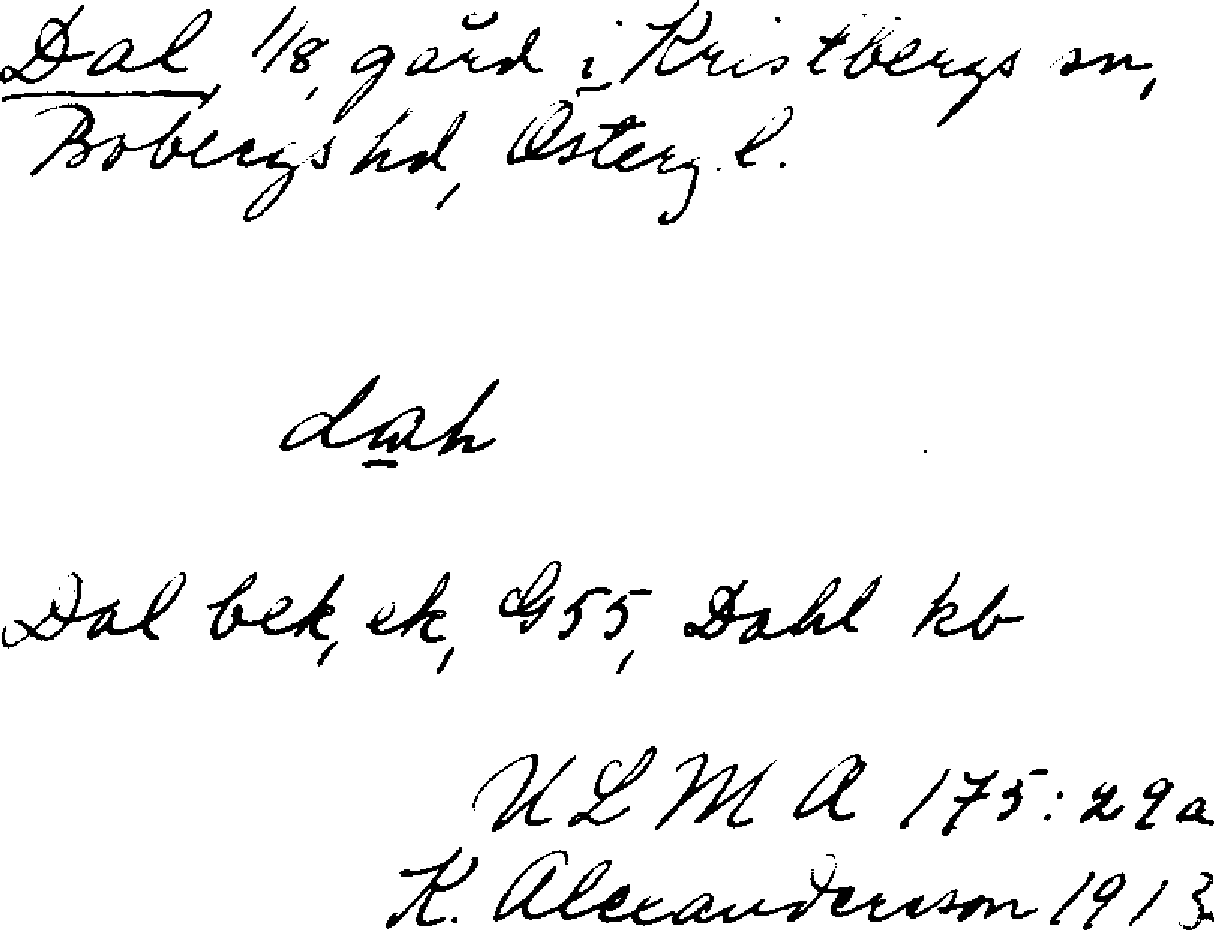 Dal, 1/8, gård i Kristbergs sn,
Bobergs hd, Österg. l.
Dal bek, ek, G55, Dahl kb
ULMA 175:29a
K. Alexandersson 1913